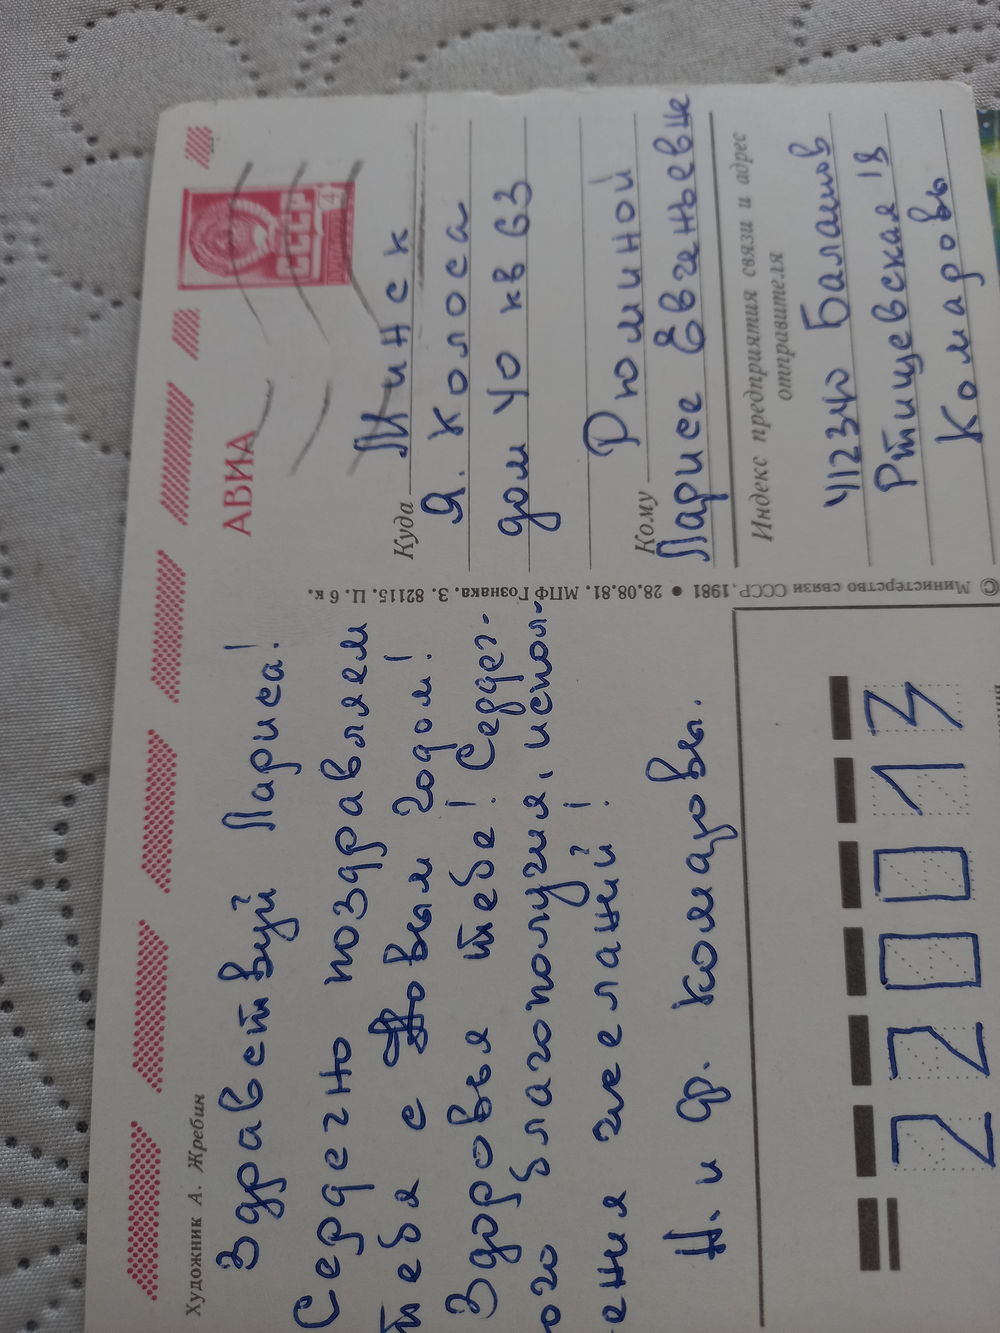 Художник А. Жребин
Здравствуй Лариса!
Сердечно поздравляем
тебя с Новым годом!
Здоровья тебе! Сердеч-
ого благополучия, испол-
ения желаний!
Н. и ф. Комаровы.
28.08.81. МПФ Гознака. З. 82115. Ц. 6 к.
© Министерство связи СССР, 1981
АВИА
СССР
4
Куда Минск
Я. Колоса
дом 40 кв 63
Кому Рюминой
Ларисе Евгеньевне
Индекс предприятия связи и адрес
отправителя
412340 Балашов
Ртищевская 18
Комаровы
220013